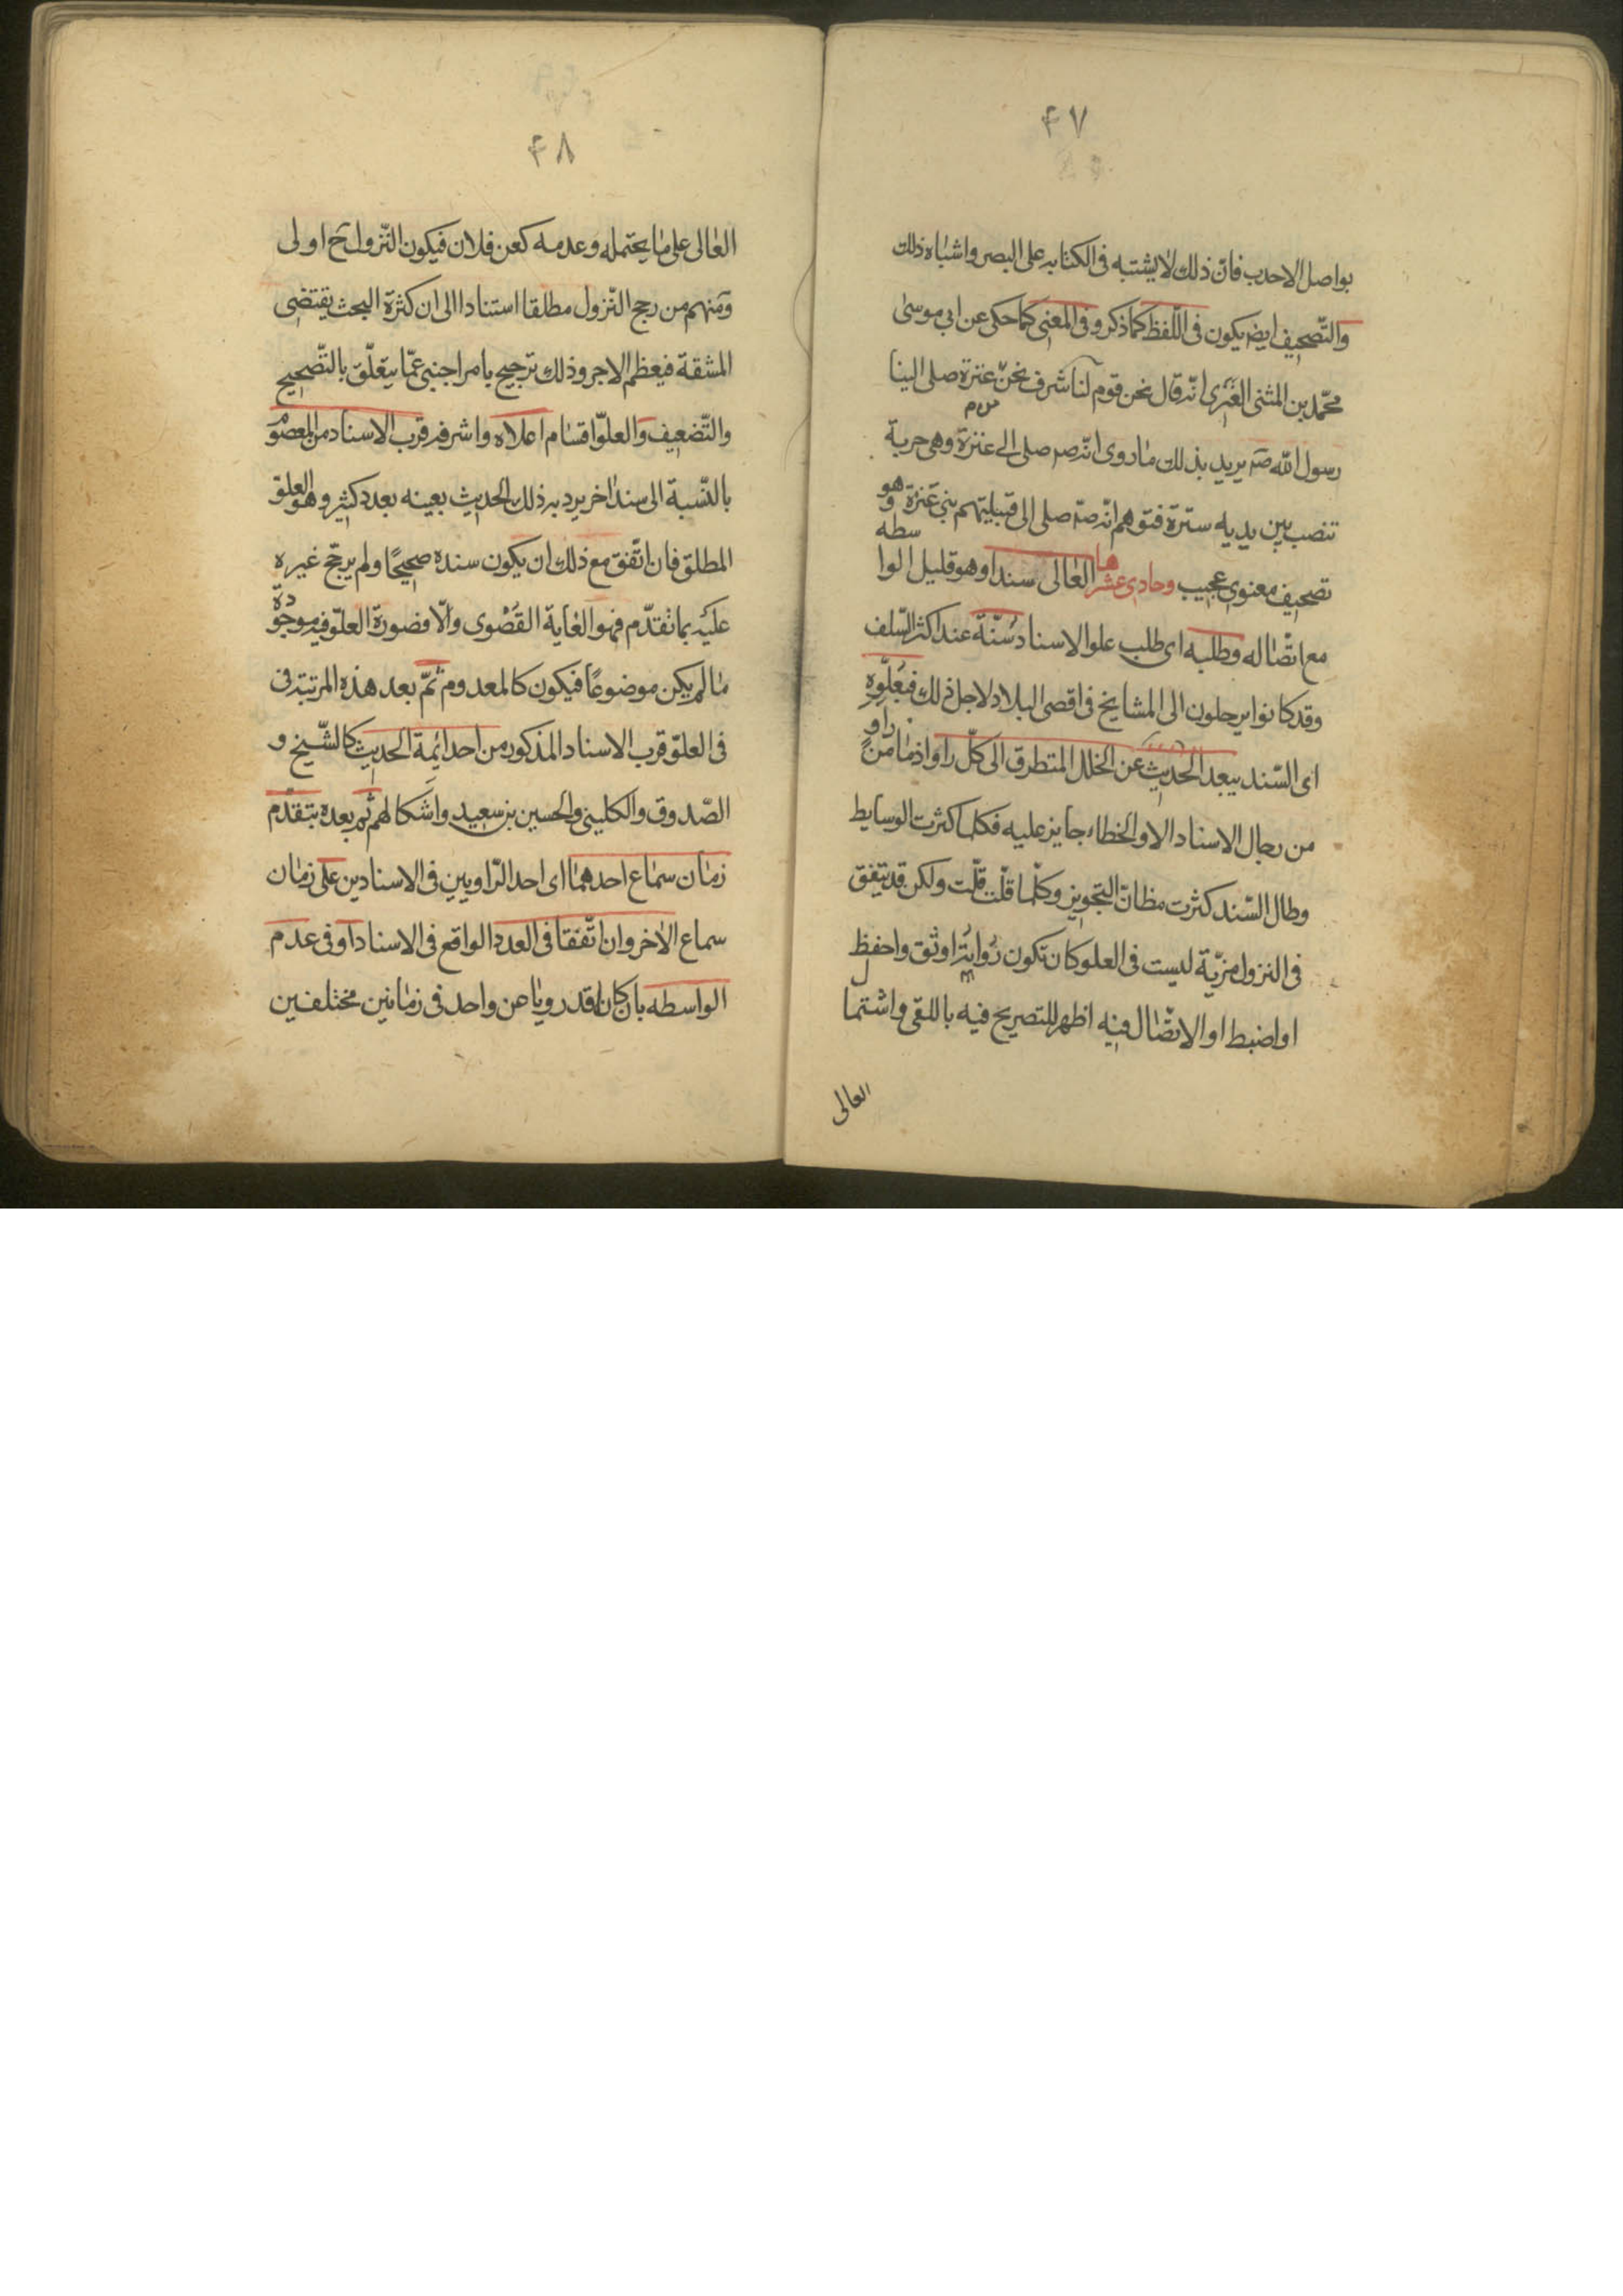 ۴۷
بواصل الاحدب فانّ ذلك لا يشتبه فى الكتابه على البصر واشباه ذلك
والتّصحيف ايضا يكون فى اللّفظ كما ذكر وفى المعنى كما حكى عن ابى موسى
محمّد بن المثنى العنزى انّه قال نحن قوم لنا شرف نحن عنزة صلى الينا
رسول الله صم يريد بذلك ما روى انّه صم صلى الى عنزة وهى حربة
تنصب بين يديه سترة فتوهم انّه صم صلى الى قبيلتهم بنى عنزة وهو
تصحيف معنوى عجيب وحادى عشرها العالى سندا وهو قليل الواسطه
مع اتّصاله وطلبه اى طلب علو الاسناد سُنّة عند اكثر السّلف
وقد كانوا يرحلون الى المشايخ فى اقصى البلاد لاجل ذلك فبعُلوّه
اى السّند يبعد الحديث عن الخلل المتطرق الى كلّ راو اذ ما من راو
من رجال الاسناد الا والخطاء جايز عليه فكلما كثرت الوسايط
وطال السّند كثرت مظانّ التجويز وكلّما قلّت قلّت ولكن قد يتفق
فى النزول مزيّة ليست فى العلو كان تكون رواته اوثق واحفظ
او اضبط او الاتّصال فيه اظهر للتصريح فيه باللقى واشتمال
العالى
۴۸
العالى على ما يحتمله وعدمه كعن فلان فيكون النّزول ح اولى
ومنهم من رجح النّزول مطلقا استنادا الى ان كثرة البحث يقتضى
المشقة فيعظم الاجر وذلك ترجيح بامر اجنبى عمّا يتعلّق بالتّصحيح
والتّضعيف والعلوّ اقسام اعلاه واشرفه قرب الاسناد من المعصوم
بالنّسبة الى سند اخر يرد به ذلك الحديث بعينه بعدد كثير وهو العلوّ
المطلق فان اتّفق مع ذلك ان يكون سنده صحيحًا ولم يرجّح غيره
عليه بما تقدّم فهو الغاية القُصْوى والّا فصورة العلوّ فيه موجودة
ما لم يكن موضوعًا فيكون كالمعدوم ثمّ بعد هذه المرتبة فى
فى العلوّ قرب الاسناد المذكور من احد ائمة الحديث كالشّيخ و
الصّدوق والكلينى والحسين بن سعيد واشكالهم ثم بعده بتقدّم
زمان سماع احدهما اى احد الرّاويين فى الاسنادين على زمان
سماع الاخر وان اتّفقا فى العدد الواقع فى الاسناد او فى عدم
الواسطه بان كانا قد رويا عن واحد فى زمانين مختلفين